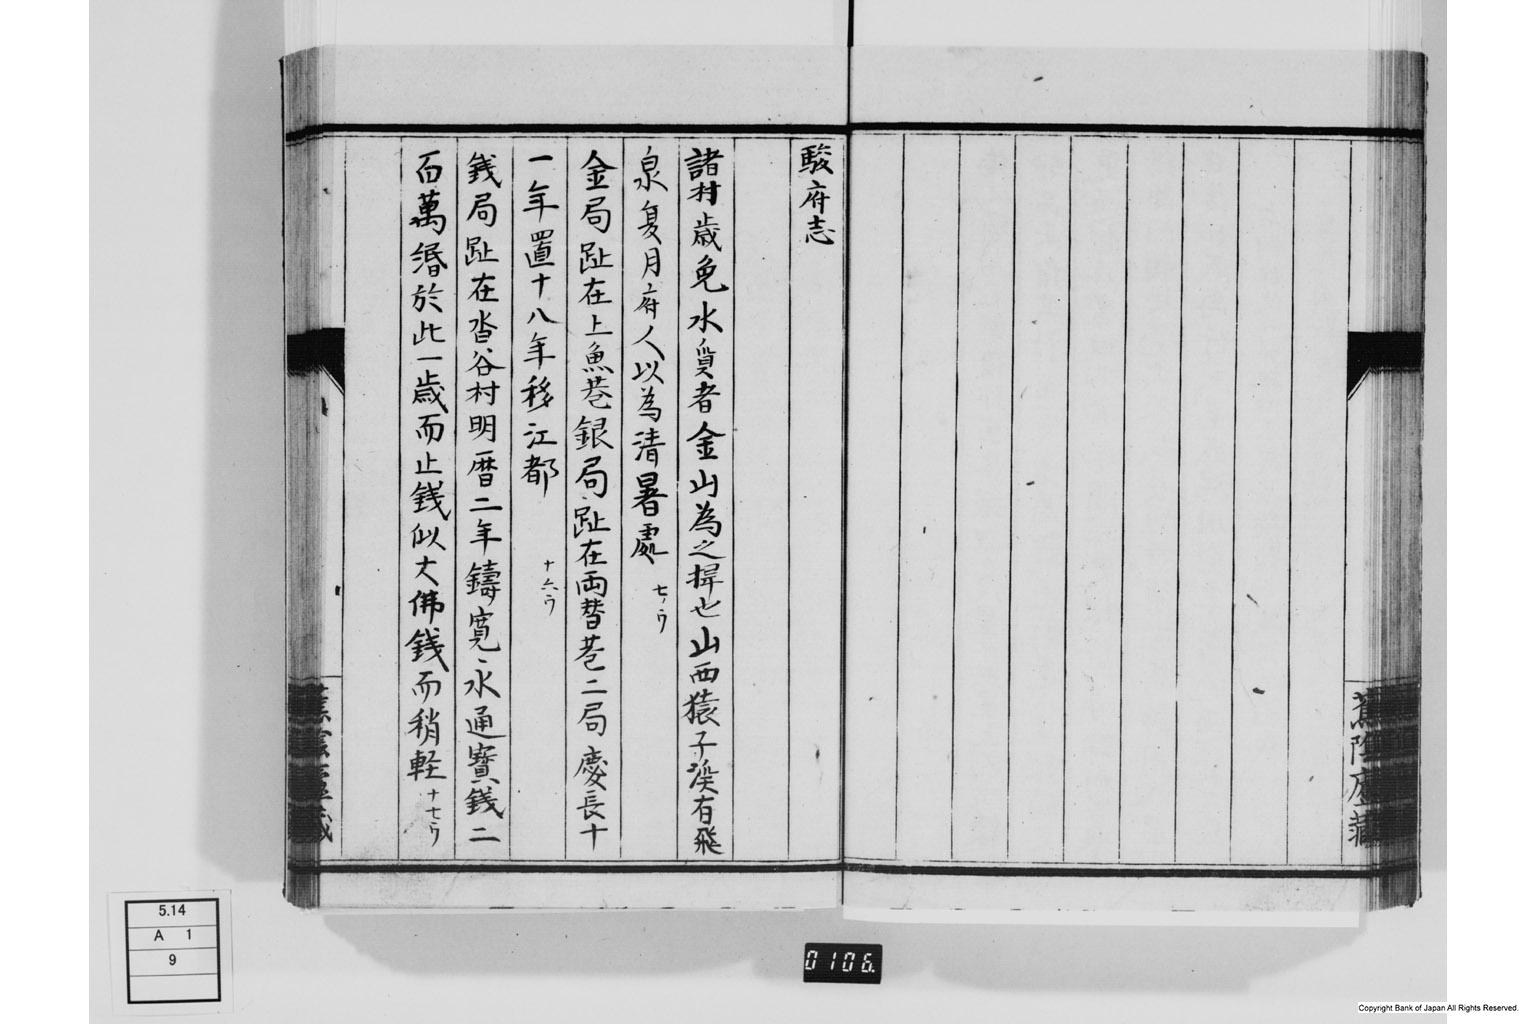 蕉陰廬藏
駿府志
諸村歳免水貭者金山為之捍也山西猿子渓有飛
泉夏月府人以為清暑處 七ノウ
金局趾在上魚巷銀局趾在両替巷二局慶長十
一年置十八年移江都 十六ウ
銭局趾在沓谷村明暦二年鑄寛永通寳銭二
百萬緡於此一歳而止銭似大佛銭而稍軽 十七ウ
5.14
A 1
9
0106.
Copyright Bank of Japan All Rights Reserved.